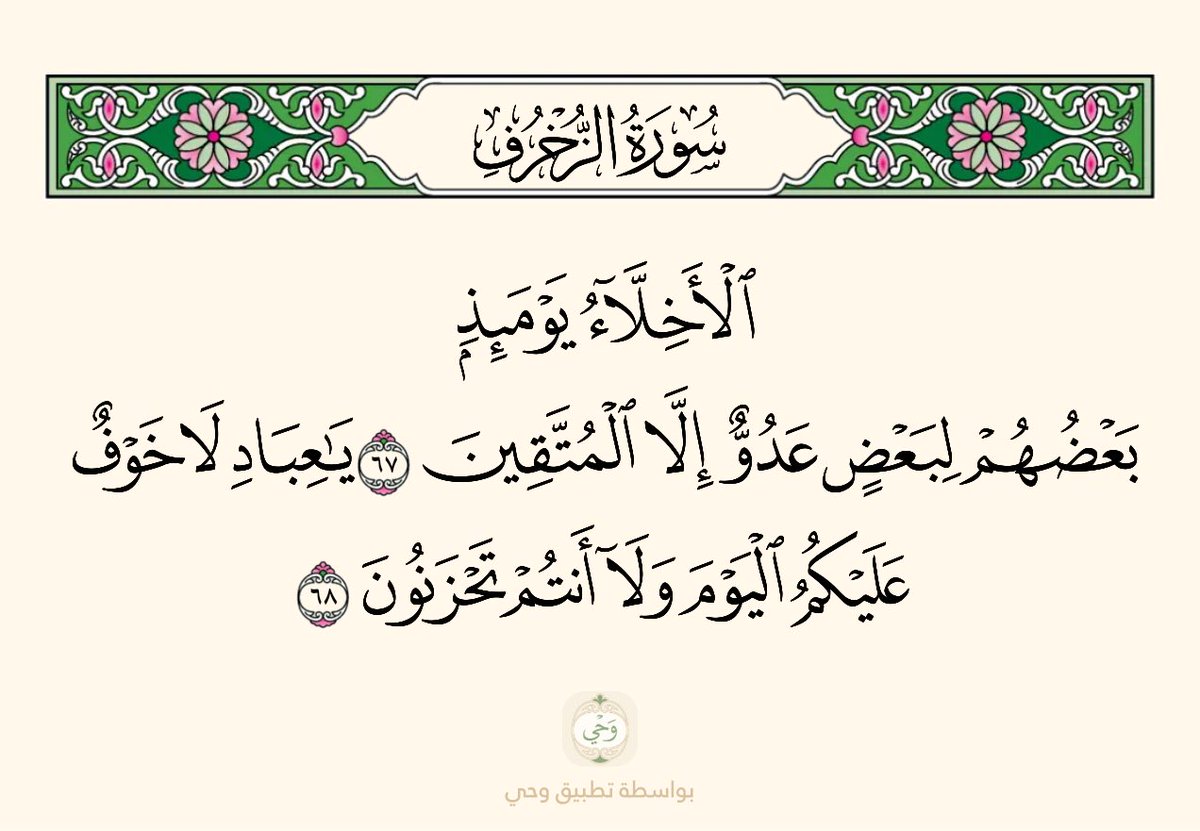 سُورَةُ الزُّخْرُفِ
ٱلْأَخِلَّآءُ يَوْمَئِذِۭ
بَعْضُهُمْ لِبَعْضٍ عَدُوٌّ إِلَّا ٱلْمُتَّقِينَ ٦٧ يَـٰعِبَادِ لَا خَوْفٌ
عَلَيْكُمُ ٱلْيَوْمَ وَلَآ أَنتُمْ تَحْزَنُونَ ٦٨
وَحْي
بواسطة تطبيق وحي